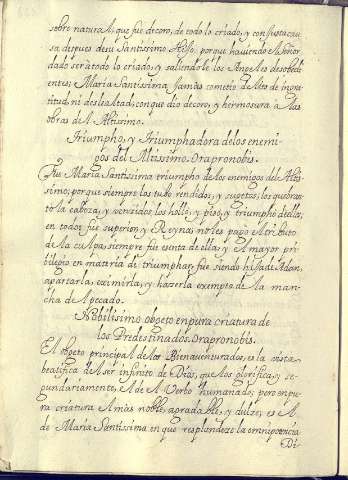 sobre natural, que fue decoro, de todo lo criado, y con justa cau
sa, dispues de su Santissimo Hijo, porque haviendo el Señor
dado ser à todo lo criado, y saliendole los Angeles desobedi
entes; Maria Santissima jamàs cometio delito de ingra
titud, ni deslealtad, conque dio decoro, y hermosura à las
obras del Altissimo.
Triumpho, y Triumphadora de los enemi
gos del Altissimo. Ora pro nobis.
Fue Maria Santissima triumpho de los enemigos del Altis
simo; porque siempre los tubo rendidos, y sugetos, los quebran
tò la cabeza, y vencidos los hollò, y pisò, y triumphò de ellos,
en todo, fue superior, y Reyna, no les pagò el tributo
de la culpa, siempre fue esenta de ella, y el mayor pri
bilegio en materia de triumphar, fue siendo hija de Adan,
apartarla, eximirla, y hazerla exempta de la man
cha del pecado.
Nobilisimo objeto en pura criatura de
los Predestinados. Ora pro nobis.
El objeto principal de los Bienauenturados, es la vista
beatifica del ser infinito de Dios, que los glorifica, y se
gundariamente, el de el Verbo humanado; pero en pu
ra criatura el mas noble, agradable, y dulze, es el
de Maria Santissima en que resplandeze la omnipotencia
Di-